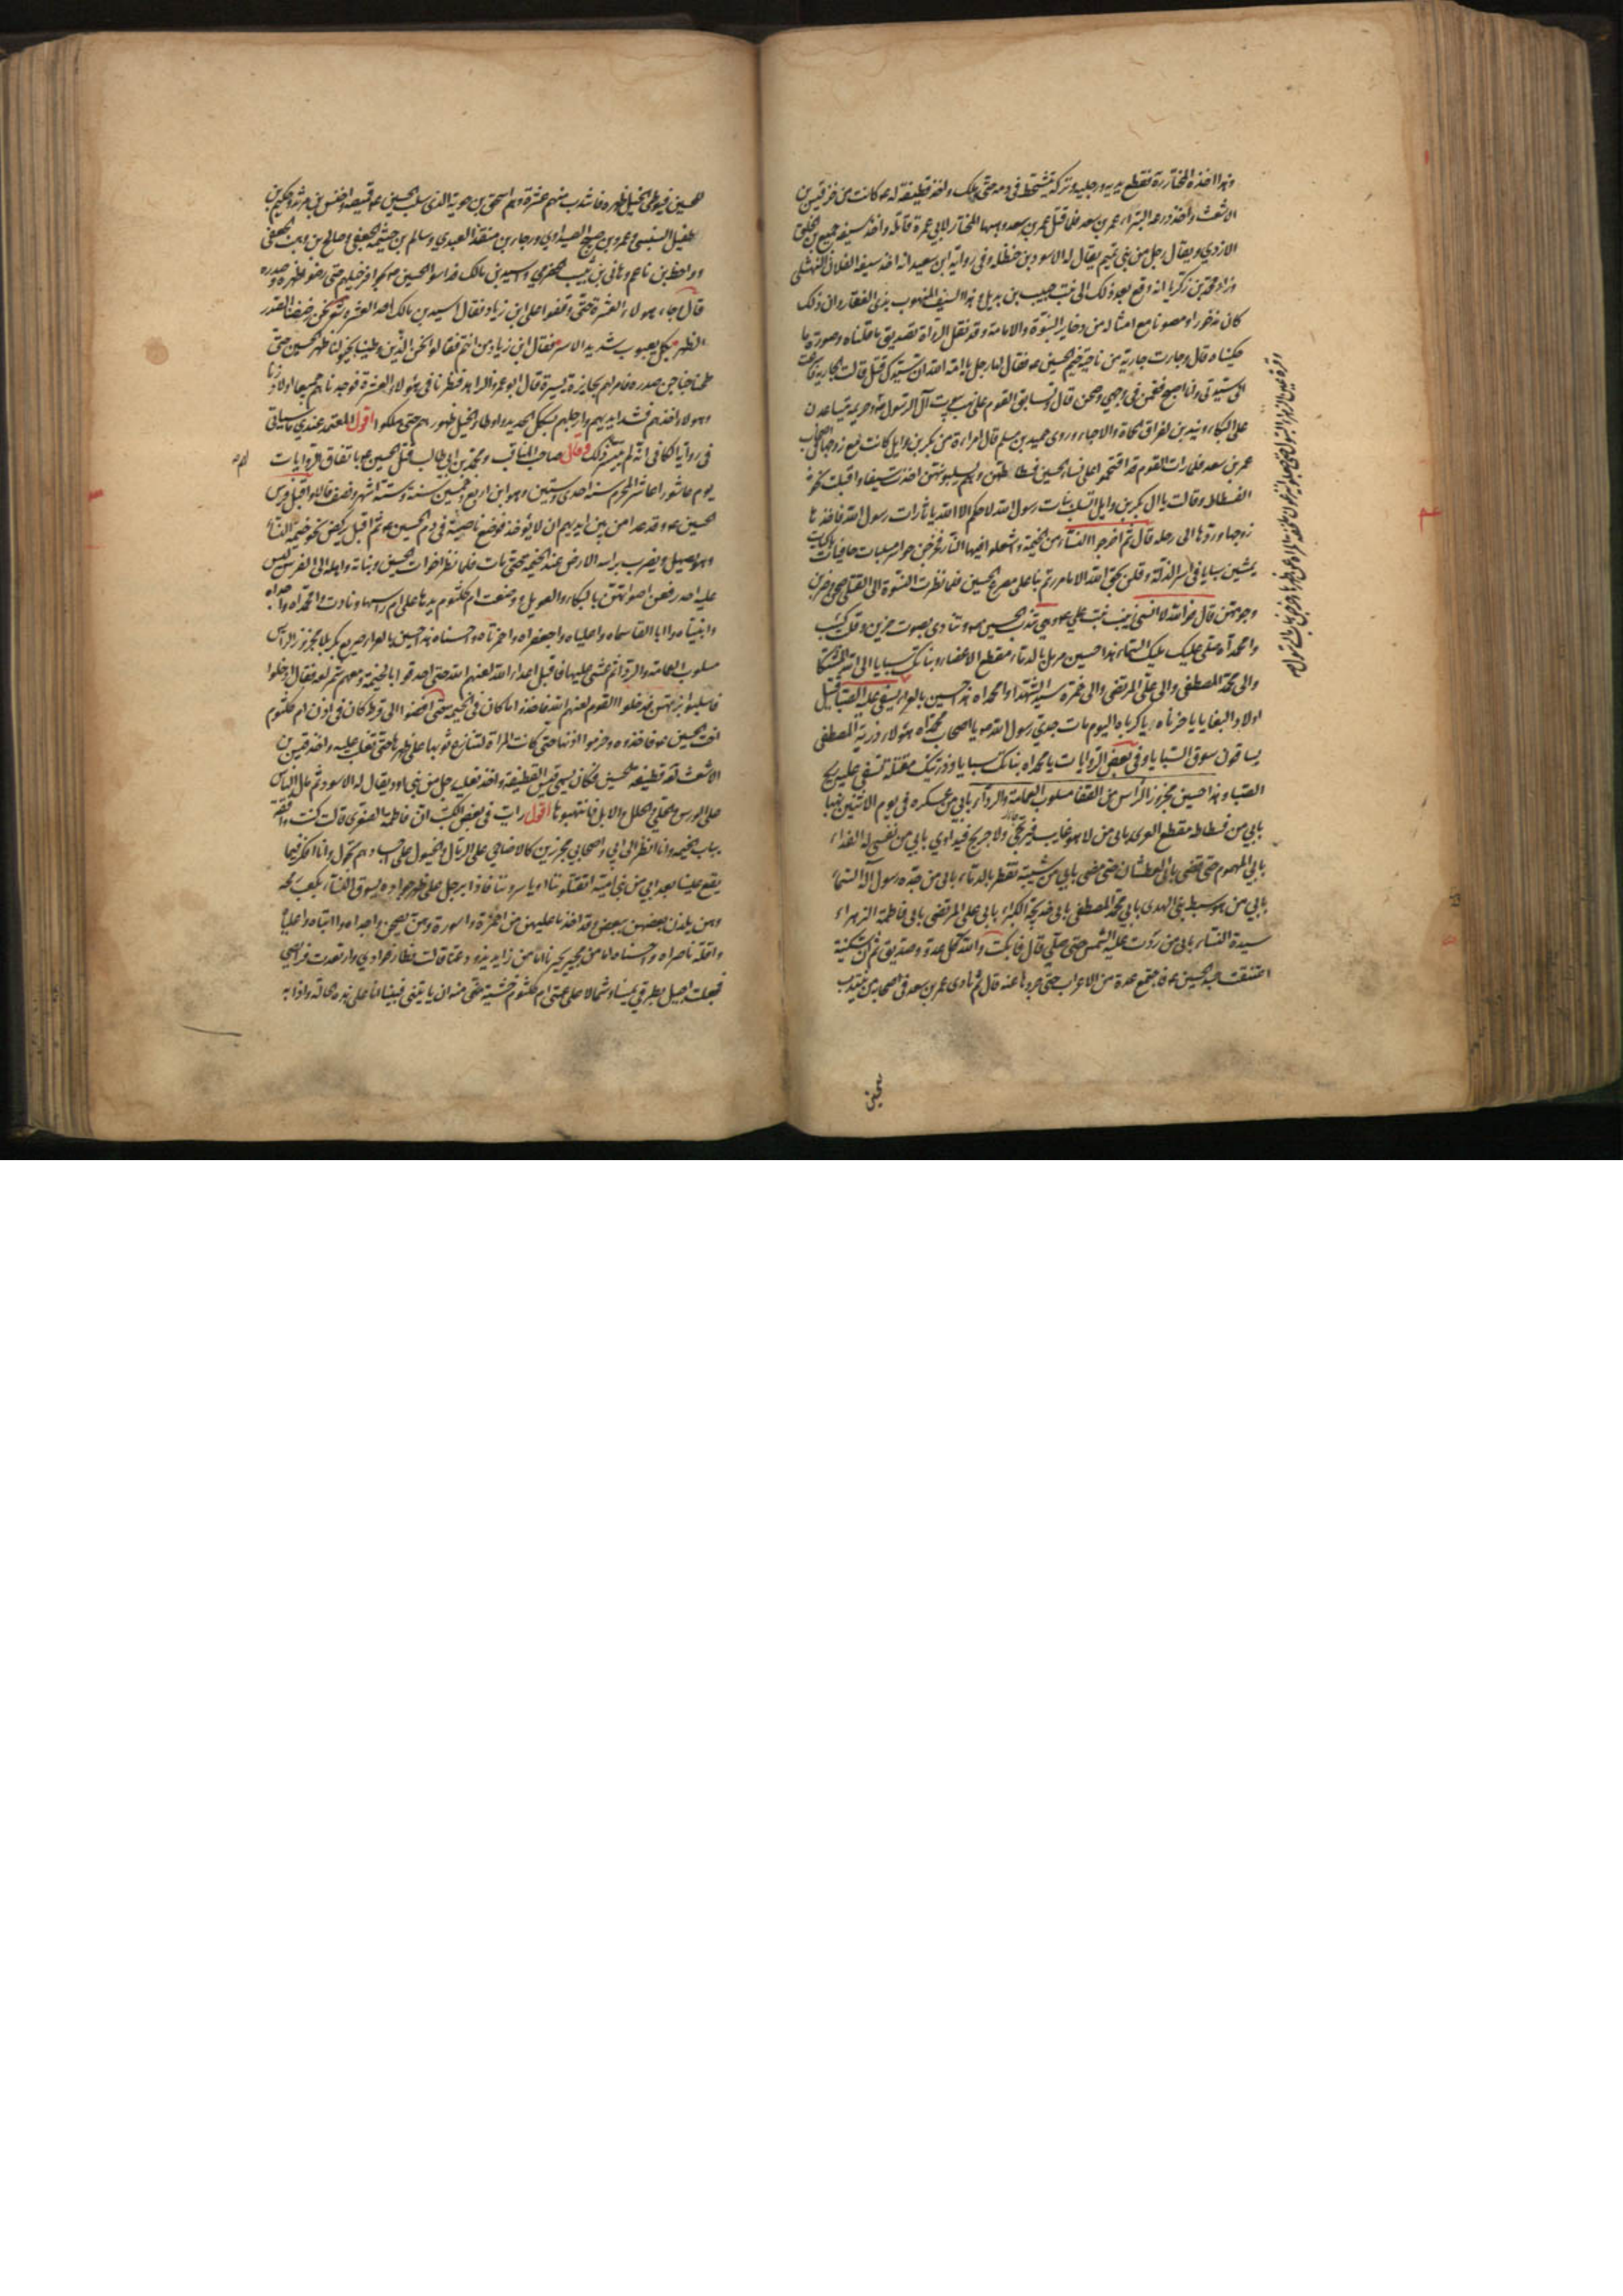 وهذا اخذه المختار رة فقطع يديه ورجليه وتركه يتشحط في دمه حتى هلك واخذ قطيفة له ع كانت من خز قيس بن
الاشعث واخذ درعه البتراء عمر بن سعد فلما قتل عمر بن سعد وهبها المختار لابي عمرة قاتله واخذ سيفه جميع بن الخلق
الاودي ويقال رجل من بني تميم يقال له الاسود بن حنظلة وفي رواية ابن سعيد انه اخذ سيفه الفلافس النهشلي
وزاد محمد بن زكريا انه وقع بعد ذلك الى بنت حبيب بن بديل وهذا السيف المنهوب ليس بذي الفقار وان ذلك
كان مذخورا ومصونا مع امثاله من ذخاير النبوة والامامة وقد نقل الرواة تصديق ما قلناه وصورة ما
حكيناه قال وجاءت جارية من ناحية خيم الحسين ع فقال لها رجل يا امة الله ان سيدك قتل قالت الجارية فاسرعت
الى سيدتي وانا اصيح فقمن في وجهي وصحن قال وتسابق القوم على نهب بيوت آل الرسول وقرة عين الزهراء البتول حتى جعلوا ينزعون ملحفة المراة عن ظهرها وخرجن بنات الرسول وحريمه يتساعدن
على البكاء ويندبن لفراق الحماة والاحباء وروى حميد بن مسلم قال رايت امراة من بكر بن وايل كانت مع زوجها في اصحاب
عمر بن سعد فلما رات القوم قد اقتحموا على نساء الحسين فسطاطهن وهم يسلبونهن اخذت سيفا واقبلت نحو
الفسطاط وقالت يا آل بكر بن وايل اتسلب بنات رسول الله لا حكم الا لله يا ثارات رسول الله فاخذها
زوجها وردها الى رحله قال ثم اخرجوا النساء من الخيمة واشعلوا فيها النار فخرجن حواسر مسلبات حافيات باكيات
يمشين سبايا في اسر الذلة وقلن بحق الله الا ما مررتم بنا على مصرع الحسين فلما نظرت النسوة الى القتلى صحن وضربن
وجوههن قال فوالله لا انسى زينب بنت علي ع وهي تندب الحسين ع وتنادي بصوت حزين وقلب كئيب
وامحمداه صلى عليك مليك السماء هذا حسين مرمل بالدماء مقطع الاعضاء وبناتك سبايا الى الله المشتكا
والى محمد المصطفى والى علي المرتضى والى حمزة سيد الشهداء وامحمداه هذا حسين بالعراء يسفي عليه الصبا قتيل
اولاد البغايا يا حزناه يا كرباه اليوم مات جدي رسول الله ص يا اصحاب محمداه هؤلاء ذرية المصطفى
يساقون سوق السبايا وفي بعض الروايات يا محمداه بناتك سبايا وذريتك مقتلة تسفي عليهم ريح
الصبا وهذا حسين مجزوز الراس من القفا مسلوب العمامة والرداء بابي من عسكره في يوم الاثنين نهبا
بابي من فسطاطه مقطع العرى بابي من لا هو غايب فيرتجى ولا جريح فيداوي بابي من نفسي له الفداء
بابي المهموم حتى قضى بابي العطشان حتى مضى بابي من شيبته تقطر بالدماء بابي من جده رسول اله السماء
بابي من هو سبط نبي الهدى بابي محمد المصطفى بابي خديجة الكبرى بابي علي المرتضى بابي فاطمة الزهراء
سيدة النساء بابي من ردت عليه الشمس حتى صلى قال فابكت والله كل عدو وصديق ثم ان سكينة
اعتنقت جسد الحسين ع فاجتمع عدة من الاعراب حتى جروها عنه قال ثم نادى عمر بن سعد في اصحابه من ينتدب
للحسين
للحسين فيوطئ الخيل ظهره فانتدب منهم عشرة وهم اسحق بن حوية الذي سلب الحسين ع قميصه واخنس بن مرثد وحكيم بن
طفيل السنبسي وعمرو بن صبيح الصيداوي ورجاء بن منقذ العبدي وسالم بن خيثمة الجعفي وصالح بن وهب الجعفي
وواحظ بن ناعم وهاني بن ثبيت الحضرمي واسيد بن مالك فداسوا الحسين ع بحوافر خيلهم حتى رضوا ظهره وصدره
قال وجاء هولاء العشرة حتى وقفوا على ابن زياد فقال اسيد بن مالك احد العشرة نحن رضضنا الصدر بعد
الظهر بكل يعبوب شديد الاسر فقال ابن زياد من انتم فقالوا نحن الذين وطئنا بخيولنا ظهر الحسين حتى
طحنا جناجن صدره فامر لهم بجايزة يسيرة قال ابو عمرو الزاهد فنظرنا في هؤلاء العشرة فوجدناهم جميعا اولاد زنا
وهولاء اخذهم فشد ايديهم وارجلهم بسكك الحديد واوطا الخيل ظهورهم حتى هلكوا اقول المعتمد عندي ما سياتي
في رواية الكافي انه لم يتيسر لهم ذلك وقال صاحب المناقب ومحمد بن ابي طالب قتل الحسين ع باتفاق الروايات
يوم عاشورا عاشر المحرم سنة احدى وستين وهو ابن اربع وخمسين سنة وستة اشهر ونصف قالا واقبل فرس
الحسين ع وقد عدا من بين ايديهم ان لا يؤخذ فوضع ناصيته في دم الحسين ع ثم اقبل يركض نحو خيمة النساء
وهو يصهل ويضرب براسه الارض عند الخيمة حتى مات فلما نظر اخوات الحسين وبناته واهله الى الفرس ليس
عليه احد رفعن اصواتهن بالبكاء والعويل ووضعت ام كلثوم يدها على ام راسها ونادت وامحمداه واجداه
وانبياه وا ابا القاسماه واعلياه واجعفراه واحمزتاه واحسناه هذا حسين بالعراء صريع بكربلا مجزوز الراس
مسلوب العمامة والرداء ثم غشي عليها فاقبل اعداء الله لعنهم الله حتى احدقوا بالخيمة ومعهم شمر لعنه فقال ادخلوا
فاسلبوا بزتهن فدخلوا القوم لعنهم الله فاخذوا ما كان في الخيمة حتى افضوا الى قرط كان في اذن ام كلثوم
اخت الحسين ع فاخذوه وخرموا اذنها حتى كانت المراة لتنازع ثوبها على ظهرها حتى تغلب عليه واخذ قيس بن
الاشعث لعنه قطيفة الحسين فكان يسمى قيس القطيفة واخذ نعليه رجل من بني اود يقال له الاسود ثم مال الناس
على الورس والحلي والحلل والابل فانتهبوها اقول رايت في بعض الكتب ان فاطمة الصغرى قالت كنت واقفة
بباب الخيمة وانا انظر الى ابي واصحابي مجزرين كالاضاحي على الرمال والخيول على اجسادهم تجول وانا افكر فيما
يقع علينا بعد ابي من بني امية ايقتلوننا او ياسروننا فاذا برجل على ظهر جواده يسوق النساء بكعب رمحه
وهن يلذن بعضهن ببعض وقد اخذ ما عليهن من اخمرة واسورة وهن يصحن واجداه وا ابتاه واعلياه
واقلة ناصراه واحسناه اما من مجير يجيرنا اما من ذايد يذود عنا قالت فطار فؤادي وارتعدت فرايصي
فجعلت اجيل بطرفي يمينا وشمالا على عمتي ام كلثوم خشية منه ان ياتيني فبينا انا على هذه الحالة واذا به